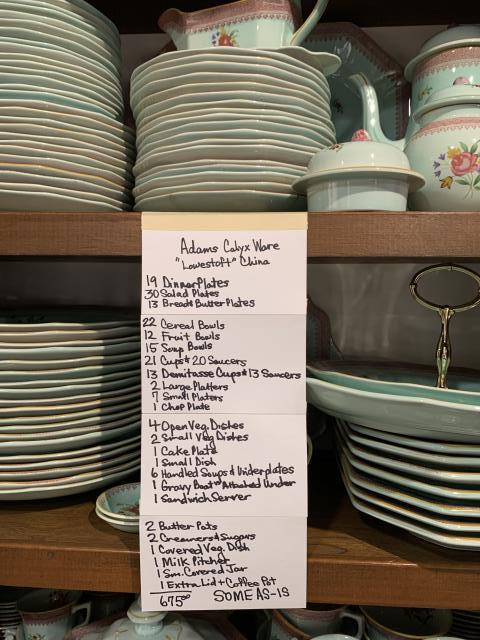 Adams Calyx Ware
"Lowestoft" China
19 Dinner Plates
30 Salad Plates
13 Bread & Butter Plates
22 Cereal Bowls
12 Fruit Bowls
15 Soup Bowls
21 Cups & 20 Saucers
13 Demitasse Cups & 13 Saucers
2 Large Platters
7 Small Platers
1 Chop Plate
4 Open Veg. Dishes
2 Small Veg Dishes
1 Cake Plate
1 Small Dish
6 Handled Soups & Underplates
1 Gravy Boat w Attached Under
1 Sandwich Server
2 Butter Pats
2 Creamers & Sugars
1 Covered Veg. Dish
1 Milk Pitcher
1 Sm. Covered Jar
1 Extra Lid + Coffee Pot
675.00 SOME AS-IS